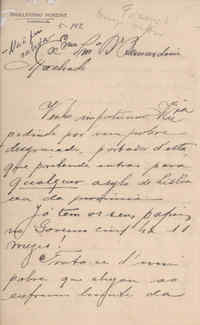 BERNARDINO
5-912
Não foi
Exmo Sr. Dr. Bernardino
Machado
Venho importunar V. Exia
pedindo por um pobre
desgraçado, portador d'esta
que pretende entrar para
qualquer asylo de Lisboa
ou da provincia.
Já tem os seus papeis
no Governo civil ha 11
mezes!
Trata-se d'um
pobre que chegou ao
extremo limite da